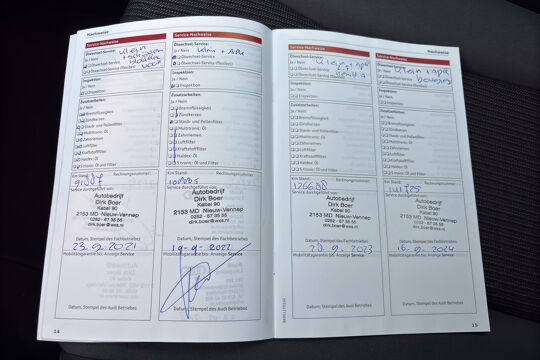 Nachweise
Service-Nachweise
Ölwechsel-Service:
Ja / Nein
Ölwechsel-Service
Ölwechsel-Service (flexibel)
Inspektion:
Ja / Nein
Inspektion
Zusatzarbeiten:
Ja / Nein
Bremsflüssigkeit
Zündkerzen
Staub- und Pollenfilter
Multitronic: Öl
Zahnriemen
Luftfilter
Kraftstofffilter
Haldex: Öl
S tronic: Öl und Filter
Km Stand: Rechnungsnummer:
Service durchgeführt von:
Autobedrijf
Dirk Boer
Kabel 90
2153 MD Nieuw-Vennep
0252 - 67 35 55
Datum, Stempel des Fachbetriebes
23-9-2021
Mobilitätsgarantie bis: Anzeige Service
Datum, Stempel des Audi Betriebes
14
Service-Nachweise
Ölwechsel-Service:
Klein + APK
Ja / Nein
Ölwechsel-Service
Ölwechsel-Service (flexibel)
Inspektion:
Ja / Nein
Inspektion
Zusatzarbeiten:
Ja / Nein
Bremsflüssigkeit
Zündkerzen
Staub- und Pollenfilter
Multitronic: Öl
Zahnriemen
Luftfilter
Kraftstofffilter
Haldex: Öl
S tronic: Öl und Filter
Km Stand: Rechnungsnummer:
Service durchgeführt von:
Autobedrijf
Dirk Boer
Kabel 90
2153 MD Nieuw-Vennep
0252 - 67 35 55
Datum, Stempel des Fachbetriebes
19-9-2022
Mobilitätsgarantie bis: Anzeige Service
Datum, Stempel des Audi Betriebes
Service-Nachweise
Ölwechsel-Service:
Ja / Nein
Ölwechsel-Service
Ölwechsel-Service (flexibel)
Inspektion:
Ja / Nein
Inspektion
Zusatzarbeiten:
Ja / Nein
Bremsflüssigkeit
Zündkerzen
Staub- und Pollenfilter
Multitronic: Öl
Zahnriemen
Luftfilter
Kraftstofffilter
Haldex: Öl
S tronic: Öl und Filter
Km Stand: Rechnungsnummer:
Service durchgeführt von:
Autobedrijf
Dirk Boer
Kabel 90
2153 MD Nieuw-Vennep
0252 - 67 35 55
Datum, Stempel des Fachbetriebes
Mobilitätsgarantie bis: Anzeige Service
Datum, Stempel des Audi Betriebes
Nachweise
Service-Nachweise
Ölwechsel-Service:
Klein + apk
Ja / Nein
Ölwechsel-Service
Ölwechsel-Service (flexibel)
Inspektion:
Ja / Nein
Inspektion
Zusatzarbeiten:
Ja / Nein
Bremsflüssigkeit
Zündkerzen
Staub- und Pollenfilter
Multitronic: Öl
Zahnriemen
Luftfilter
Kraftstofffilter
Haldex: Öl
S tronic: Öl und Filter
Km Stand: Rechnungsnummer:
Service durchgeführt von:
Autobedrijf
Dirk Boer
Kabel 90
2153 MD Nieuw-Vennep
0252 - 67 35 55
Datum, Stempel des Fachbetriebes
16-9-2024
Mobilitätsgarantie bis: Anzeige Service
Datum, Stempel des Audi Betriebes
15